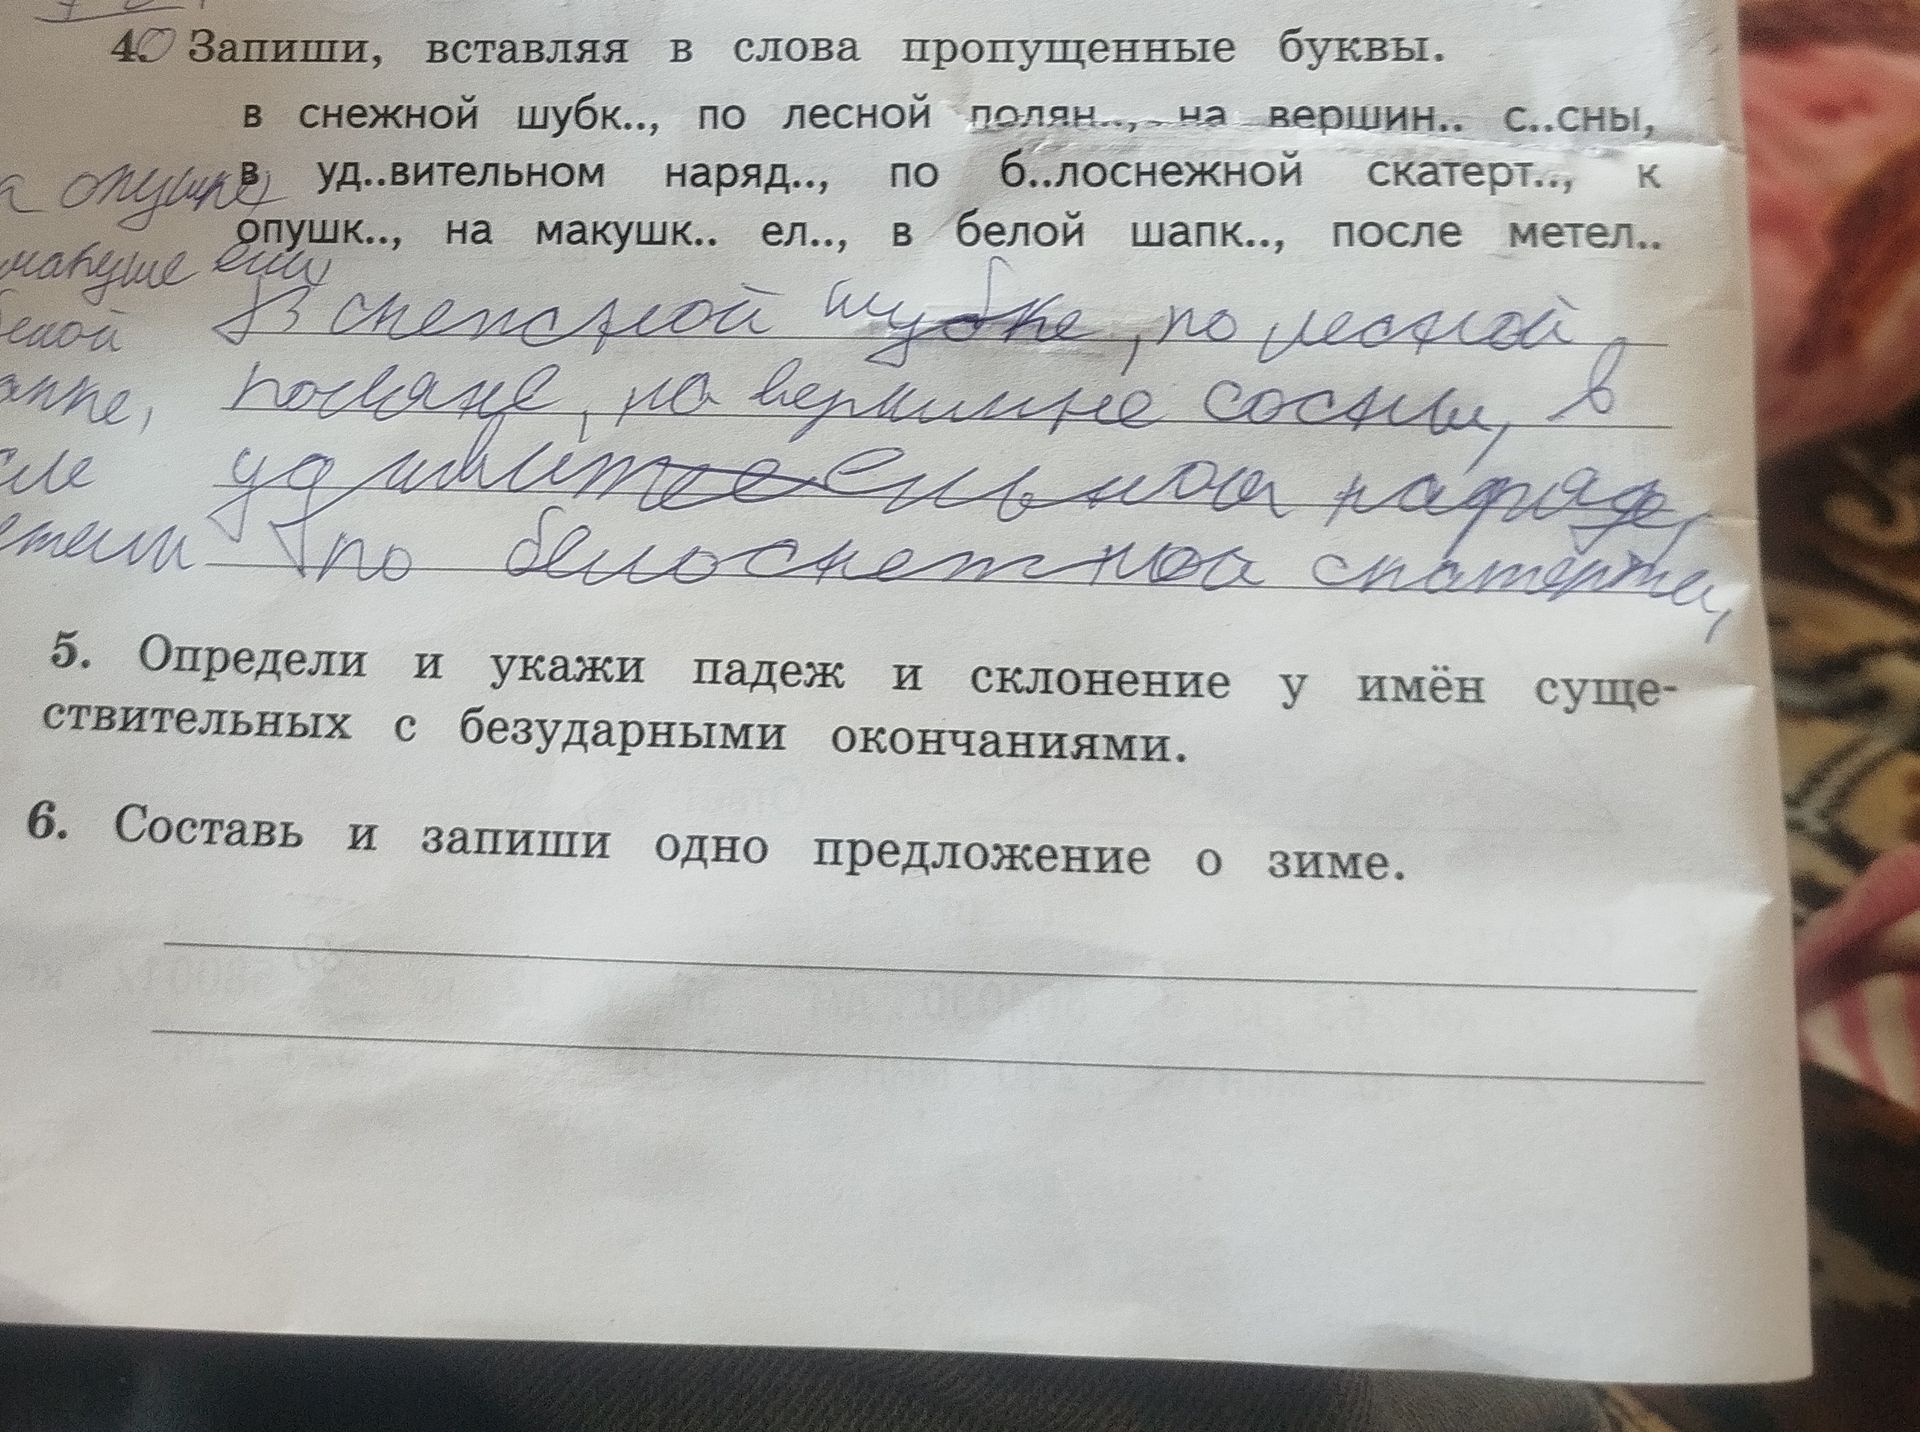 4. Запиши, вставляя в слова пропущенные буквы.
в снежной шубк.., по лесной полян.., на вершин.. с..сны,
в уд..вительном наряд.., по б..лоснежной скатерт.., к
опушке,
опушк.., на макушк.. ел.., в белой шапк.., после метел..
макуше ели,
В снежной шубке, по лесной
поляне, на вершине сосны, в
удивительном наряде,
по белоснежной скатерти,
5. Определи и укажи падеж и склонение у имён суще-
ствительных с безударными окончаниями.
6. Составь и запиши одно предложение о зиме.